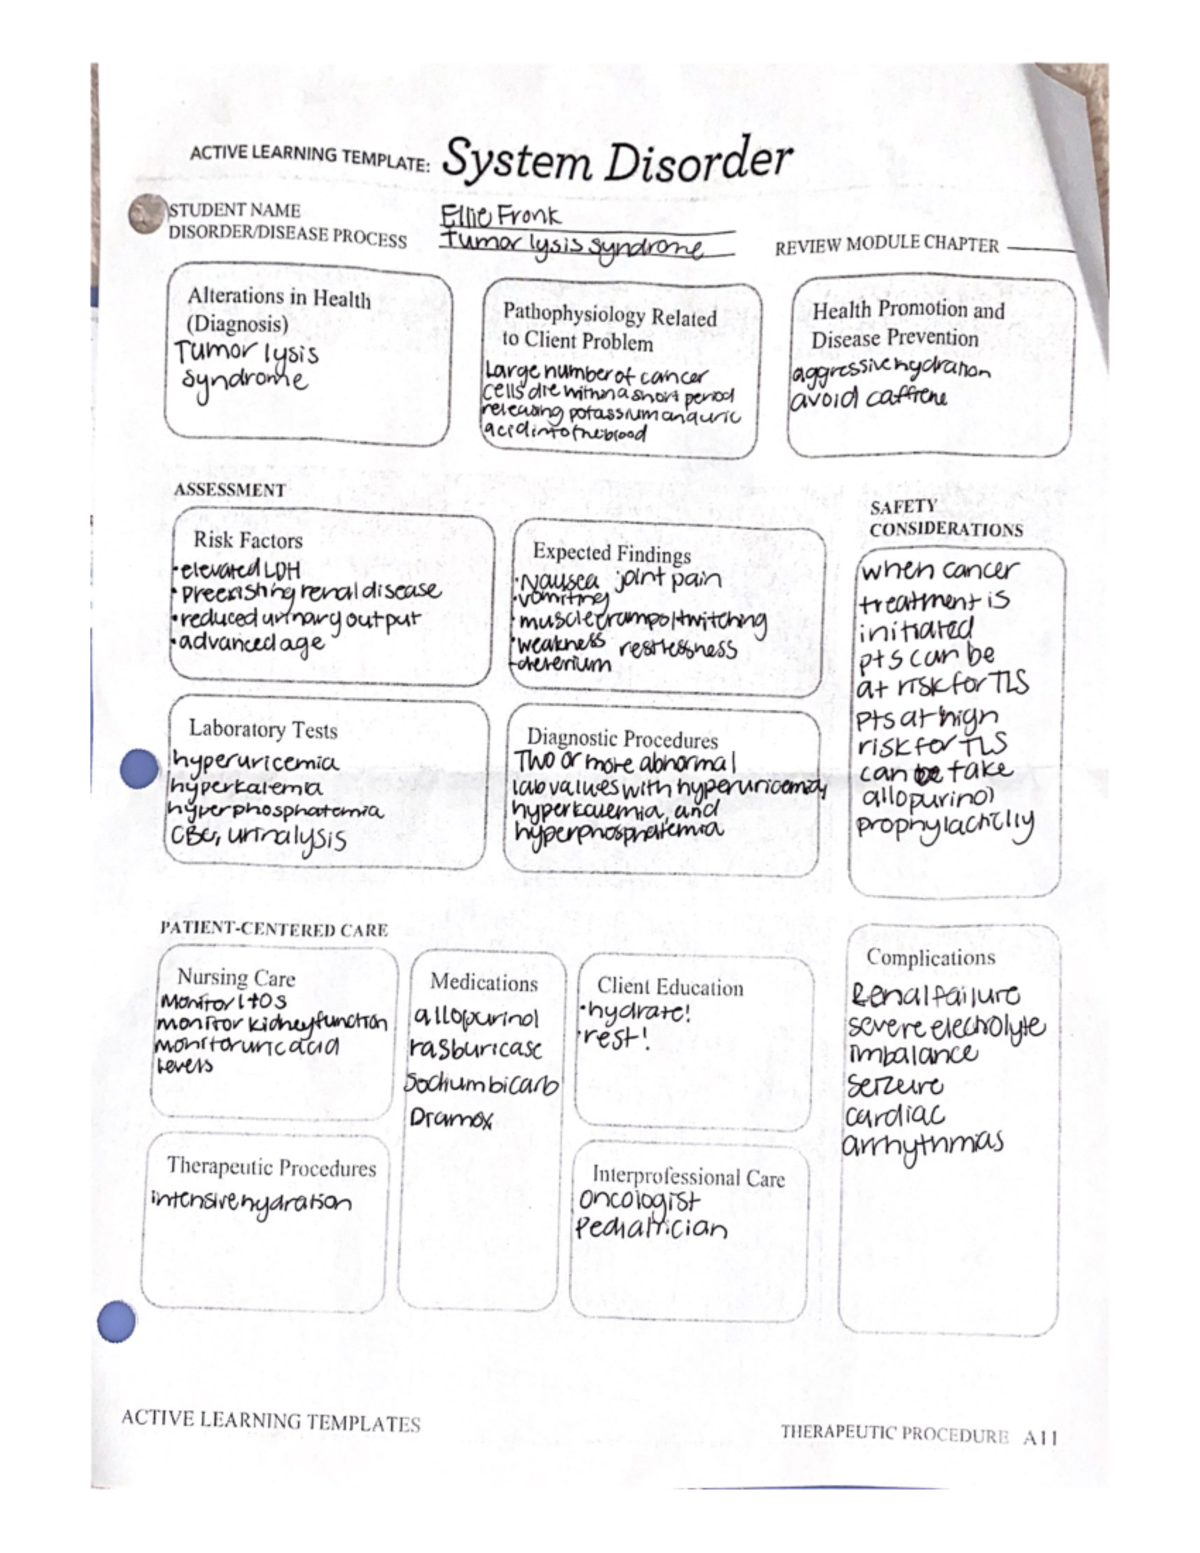 ACTIVE LEARNING TEMPLATE: System Disorder
STUDENT NAME Ellie Fronk
DISORDER/DISEASE PROCESS Tumor lysis syndrome
REVIEW MODULE CHAPTER
Alterations in Health
(Diagnosis)
Tumor lysis
syndrome
Pathophysiology Related
to Client Problem
Large number of cancer
cells die within a short period
releasing potassium and uric
acid into the blood
Health Promotion and
Disease Prevention
aggressive hydration
avoid caffiene
ASSESSMENT
SAFETY
CONSIDERATIONS
Risk Factors
•elevated LDH
•Preexisting renal disease
•reduced urinary output
•advanced age
Expected Findings
•Nausea joint pain
•vomiting
•muscle cramps/twitching
•weakness restlessness
-deterium
when cancer
treatment is
initiated
pts can be
at risk for TLS
pts at high
risk for TLS
can take
allopurinol
Laboratory Tests
hyperuricemia
hyperkalemia
hyperphosphatemia
CBC, urinalysis
Diagnostic Procedures
Two or more abnormal
lab values with
hyperkalemia, and
hyperphosphatemia
PATIENT-CENTERED CARE
Nursing Care
Monitor I+Os
monitor kidney function
monitor uric acid
levels
Medications
allopurinol
rasburicase
Sodium bicarb
Dramox
Client Education
•hydrate!
•rest!
Complications
Renal failure
severe electrolyte
imbalance
seizure
cardiac
arrhythmas
Therapeutic Procedures
intensive hydration
Interprofessional Care
oncologist
Pediatrician
ACTIVE LEARNING TEMPLATES
THERAPEUTIC PROCEDURE A11